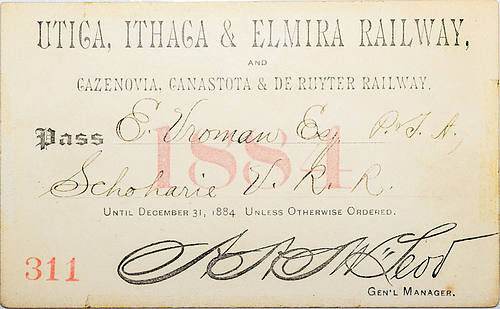 UTICA, ITHACA & ELMIRA RAILWAY,
AND
CAZENOVIA, CANASTOTA & DE RUYTER RAILWAY.
Pass E. Vroman Esq P. & T. A.,
1884
Schoharie V. R. R.
UNTIL DECEMBER 31, 1884 UNLESS OTHERWISE ORDERED.
311 A A McLeod
GEN'L MANAGER.